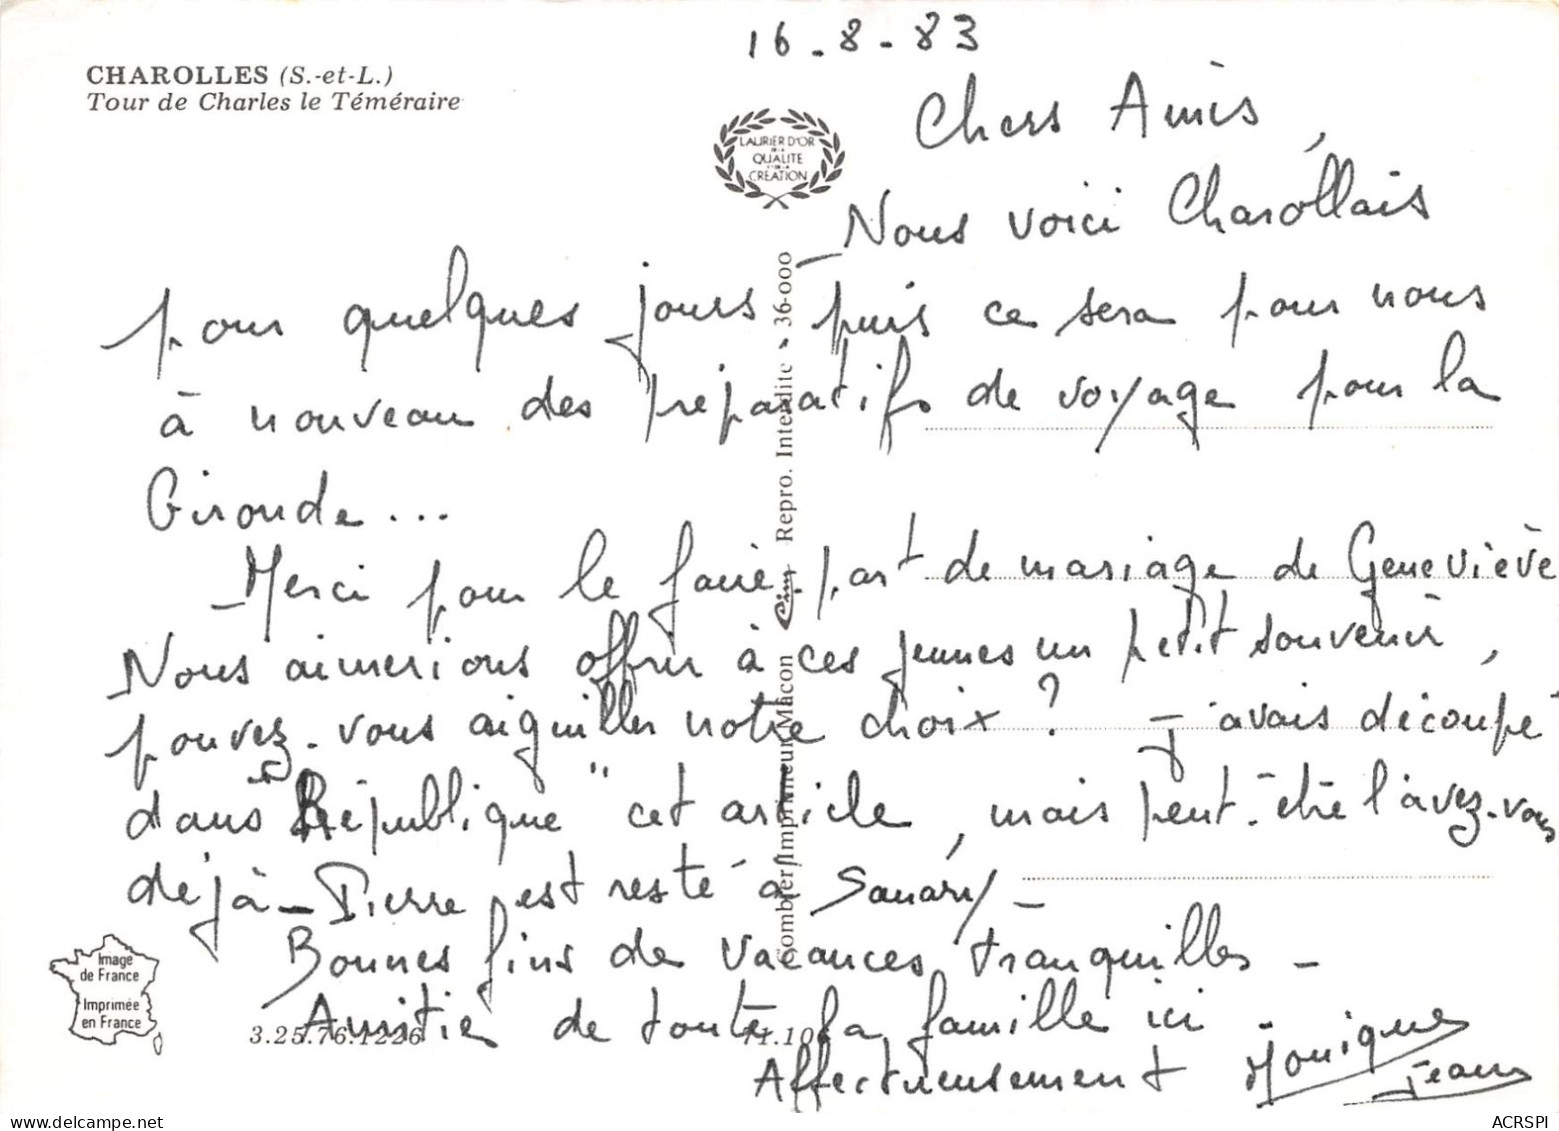 16-8-83
CHAROLLES (S.-et-L.)
Tour de Charles le Téméraire
LAURIER D'OR
DE LA
QUALITE
ET DE LA
CRÉATION
Chers Amis,
Nous voici Charollais
pour quelques jours puis ce sera pour nous
à nouveau des préparatifs de voyage pour la
Gironde...
- Merci pour le faire-part de mariage de Geneviève
Nous aimerions offrir à ces jeunes un petit souvenir,
pouvez-vous aiguiller notre choix ? J'avais découpé
dans "République" cet article, mais peut-être l'avez-vous
déjà - Pierre est resté à Sanary -
Bonnes fins de vacances tranquilles -
Amitié de toute la famille ici
Affectueusement Monique
Jean
Combier Imprimeur Mâcon Cim Repro. Interdite 36-000
Image
de France
Imprimée
en France
3.25.76.1226
ACRSPI